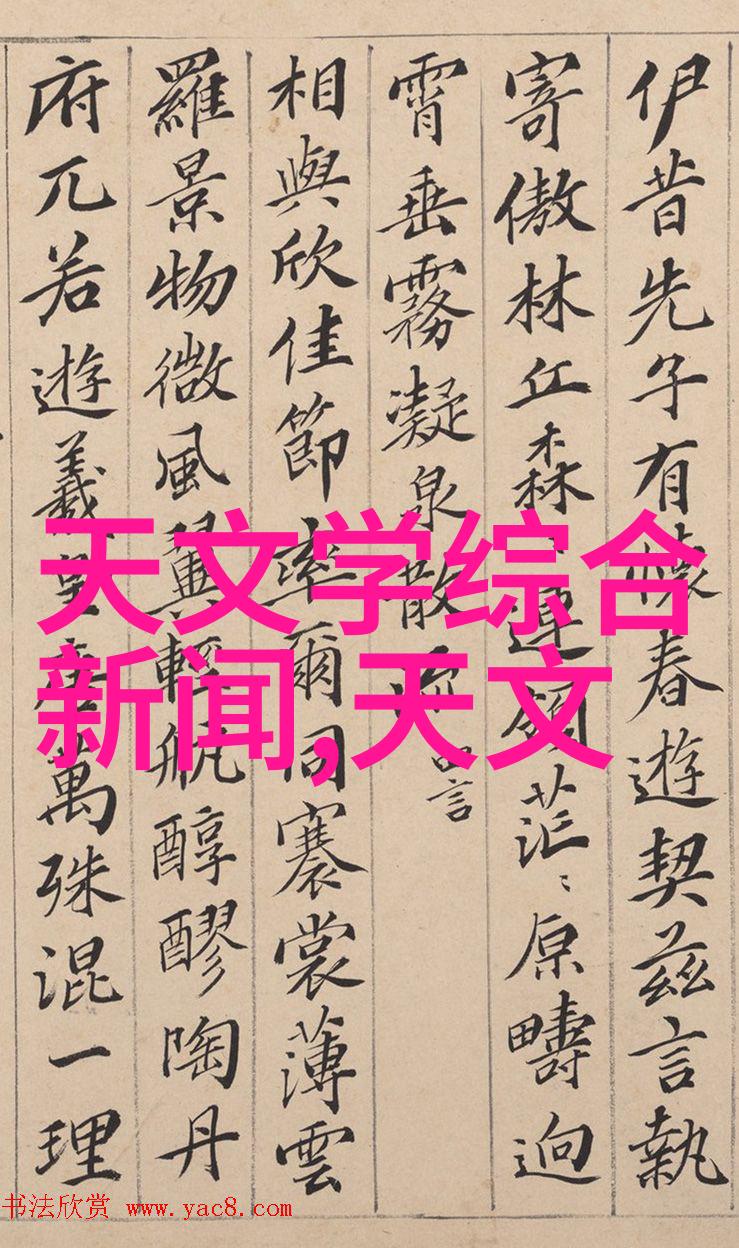 伊昔先子有懷春遊契茲言執
寄傲林丘森〻連領茫〻原疇迥
霄垂霧凝泉散流
言
相與欣佳節率爾同褰裳薄雲
羅景物微風翼輕航醇醪陶丹
府兀若遊羲唐萬殊混一理
天文学综合
新闻,天文
书法欣赏 www.yac8.com